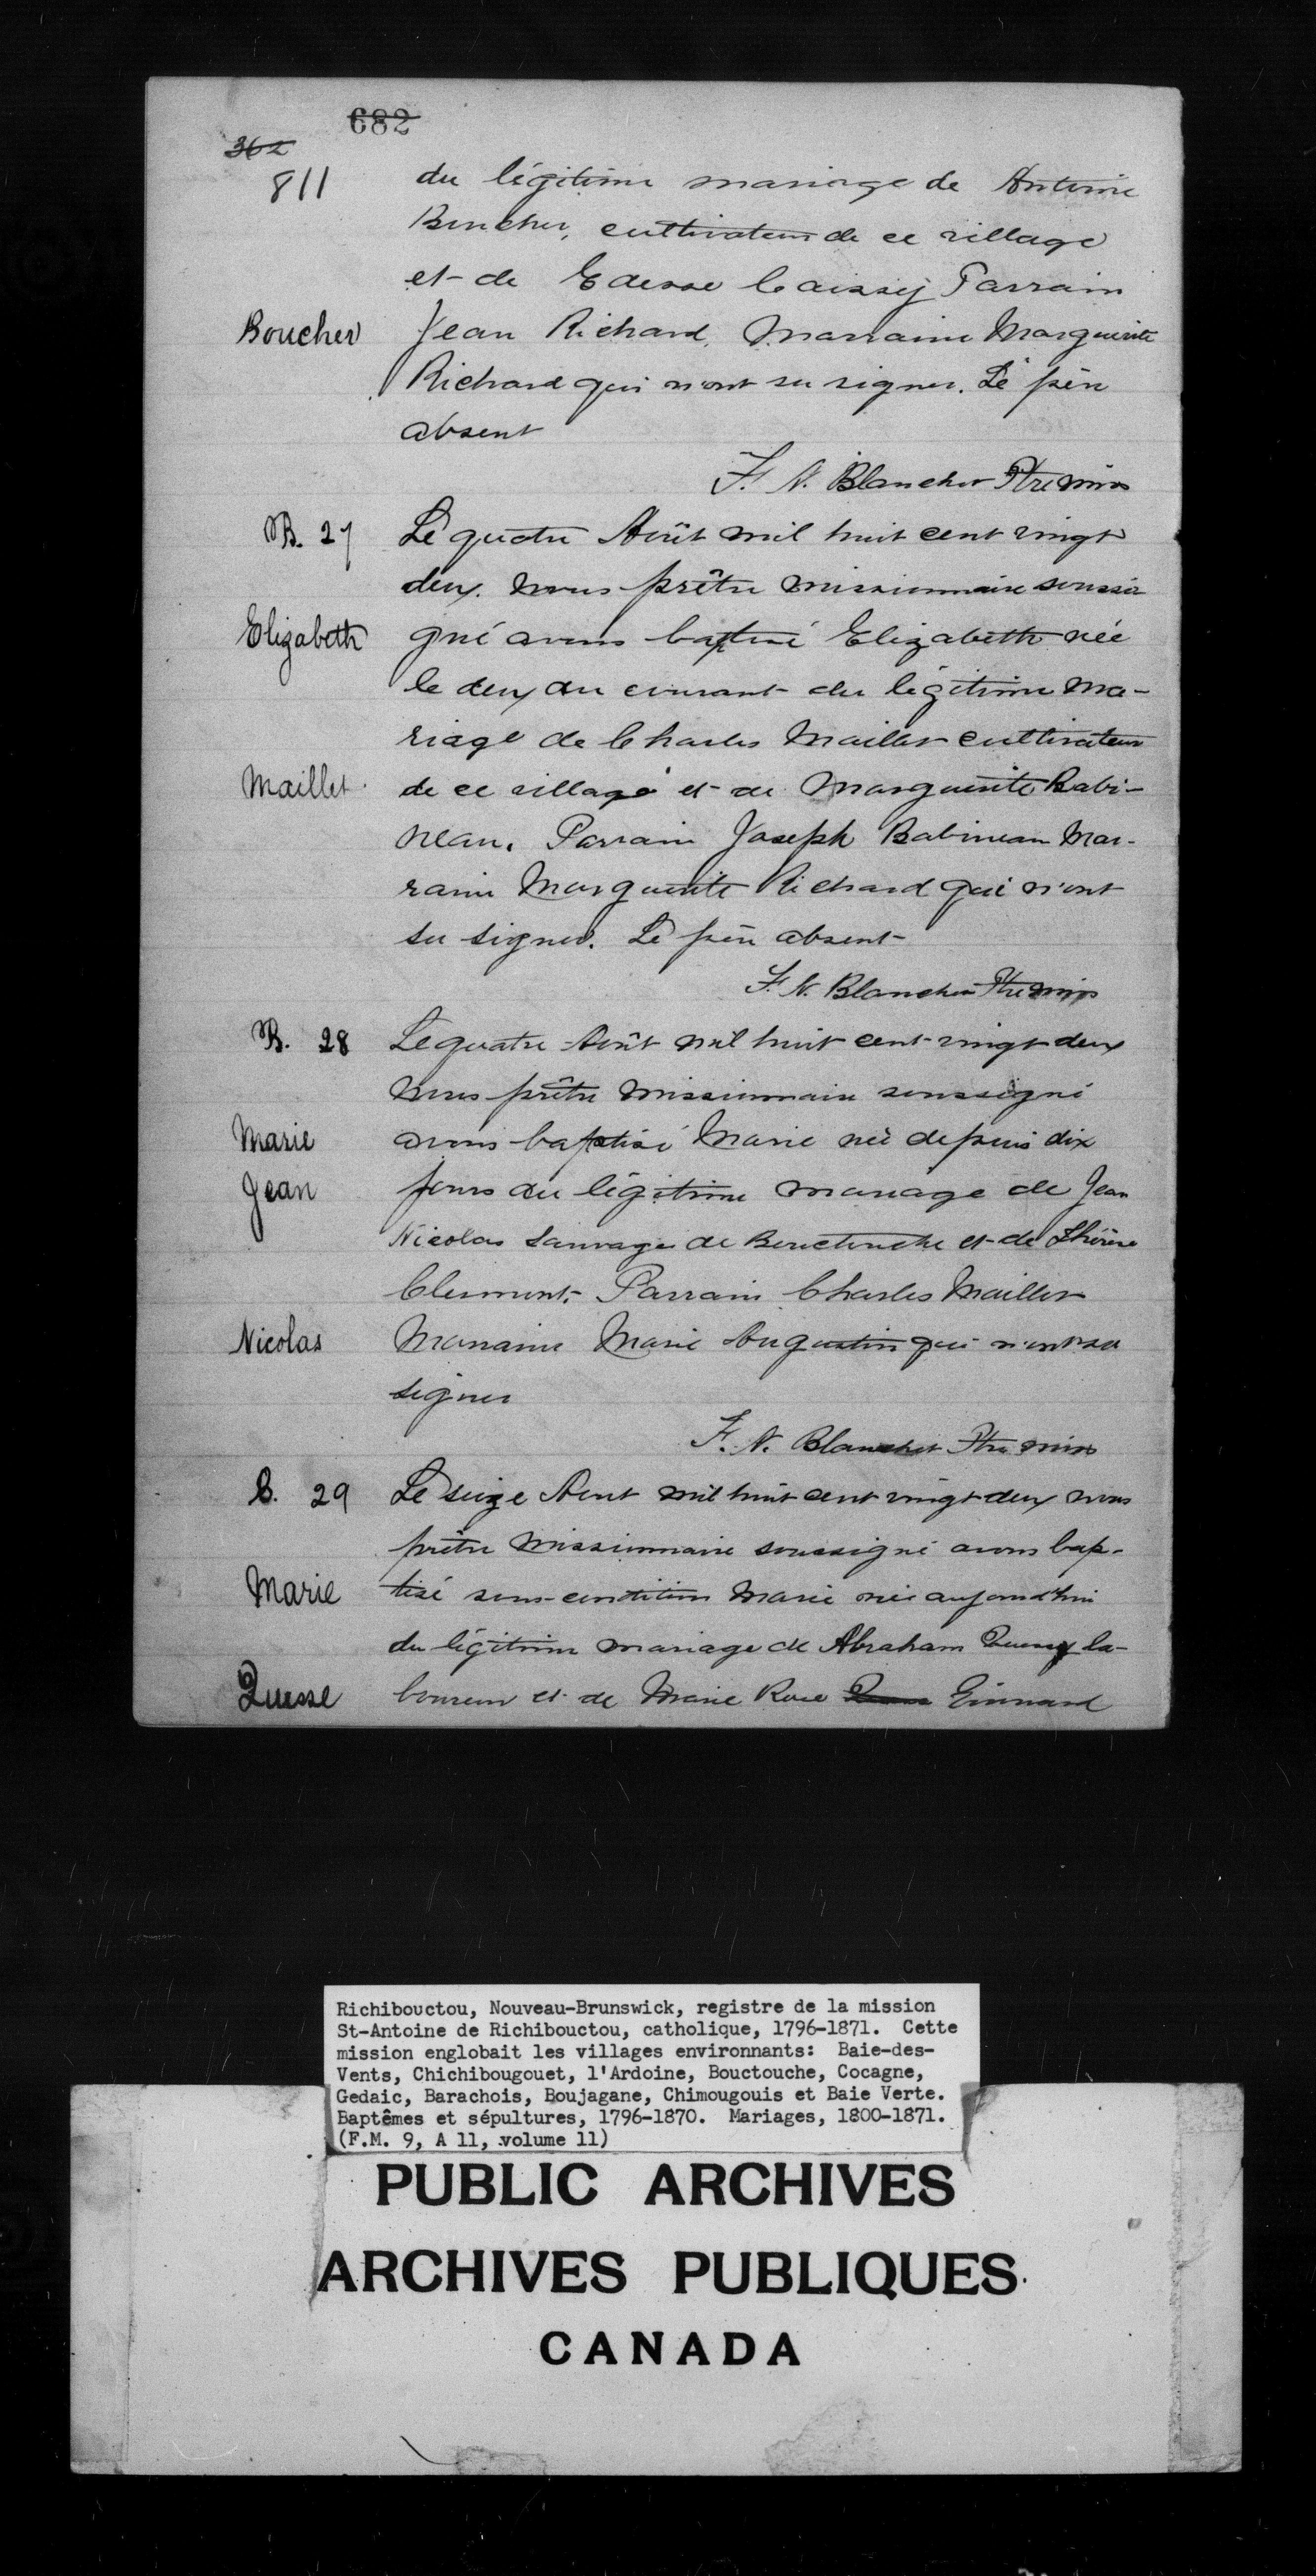 682
362
811
du légitime mariage de Antoine
Boucher, cultivateur de ce village
et de Edesse Caissy Parrain
Boucher
Jean Richard, Marraine Marguerite
Richard qui n'ont su signer. Le père
absent
F. N. Blanchet Ptre miss
B. 27
Le quatre Août mil huit cent vingt
deux. Nous prêtre missionnaire soussi
Elizabeth
gné avons baptisé Elizabeth née
le deux du courant du légitime ma-
riage de Charles Maillet cultivateur
Maillet
de ce village et de Marguerite Babi-
neau. Parrain Joseph Babineau Mar-
raine Marguerite Richard qui n'ont
su signer. Le père absent
F. N. Blanchet Ptre miss
B. 28
Le quatre Août mil huit cent vingt deux
nous prêtre missionnaire soussigné
Marie
avons baptisé Marie née depuis dix
Jean
jours du légitime mariage de Jean
Nicolas Sauvage de Bouctouche et de Thérèse
Clermont. Parrain Charles Maillet
Nicolas
Marraine Marie Augustin qui n'ont su
signer
F. N. Blanchet Ptre miss
B. 29
Le seize Aout mil huit cent vingt deux nous
prêtre missionnaire soussigné avons bap-
Marie
tisé sous condition Marie née aujourd'hui
du légitime mariage de Abraham la-
Quesse
boureur et de Marie Rose
Richibouctou, Nouveau-Brunswick, registre de la mission
St-Antoine de Richibouctou, catholique, 1796-1871. Cette
mission englobait les villages environnants: Baie-des-
Vents, Chichibougouet, l'Ardoine, Bouctouche, Cocagne,
Gedaic, Barachois, Boujagane, Chimougouis et Baie Verte.
Baptêmes et sépultures, 1796-1870. Mariages, 1800-1871.
(F.M. 9, A 11, volume 11)
PUBLIC ARCHIVES
ARCHIVES PUBLIQUES
CANADA